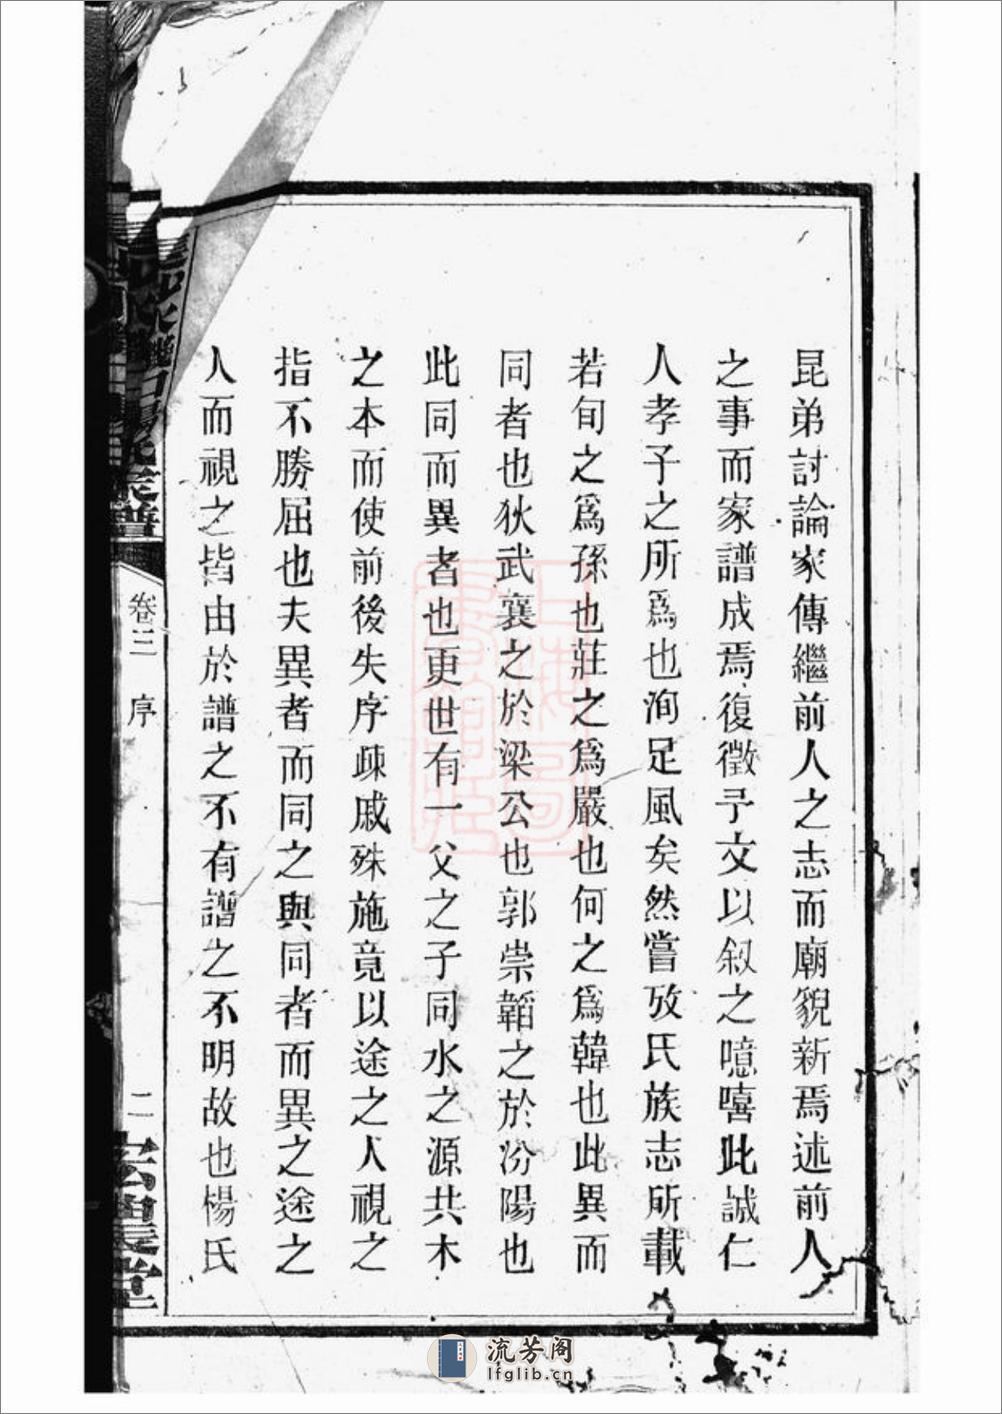 昆弟討論家傳繼前人之志而廟貌新焉述前人
之事而家譜成焉復徵予文以敘之噫嘻此誠仁
人孝子之所爲也洵足風矣然嘗攷氏族志所載
若旬之爲孫也莊之爲嚴也何之爲韓也此異而
同者也狄武襄之於梁公也郭崇韜之於汾陽也
此同而異者也更世有一父之子同水之源共木
之本而使前後失序疎戚殊施竟以途之人視之
指不勝屈也夫異者而同之與同者而異之途之
人而視之皆由於譜之不有譜之不明故也楊氏
氏宗譜
卷三 序
二
流芳阁
lfglib.cn